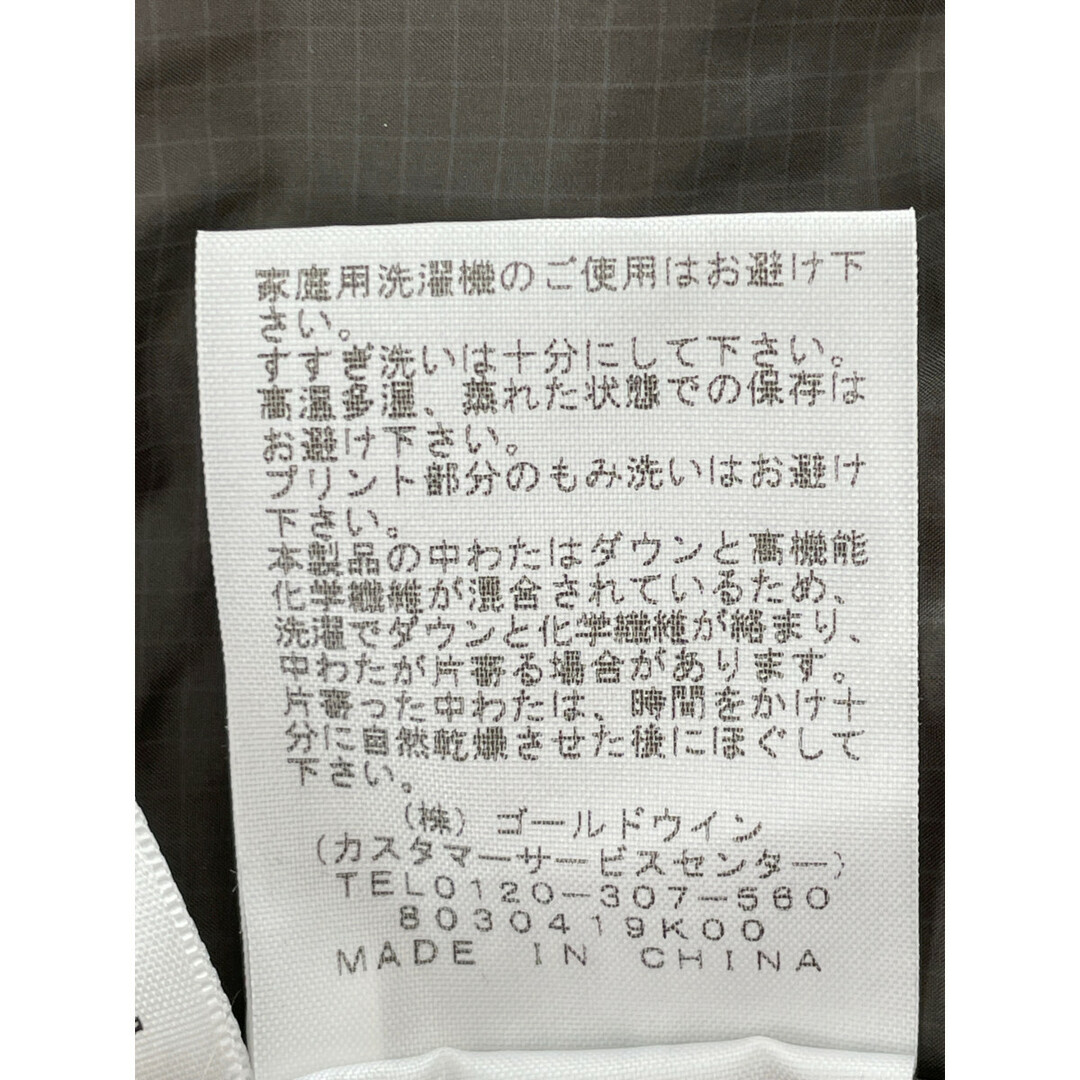 家庭用洗濯機のご使用はお避け下
さい。
すすぎ洗いは十分にして下さい。
高温多湿、蒸れた状態での保存は
お避け下さい。
プリント部分のもみ洗いはお避け
下さい。
本製品の中わたはダウンと高機能
化学繊維が混合されているため、
洗濯でダウンと化学繊維が絡まり、
中わたが片寄る場合があります。
片寄った中わたは、時間をかけ十
分に自然乾燥させた後にほぐして
下さい。
(株) ゴールドウイン
(カスタマーサービスセンター)
TEL0120-307-560
8030419K00
MADE IN CHINA